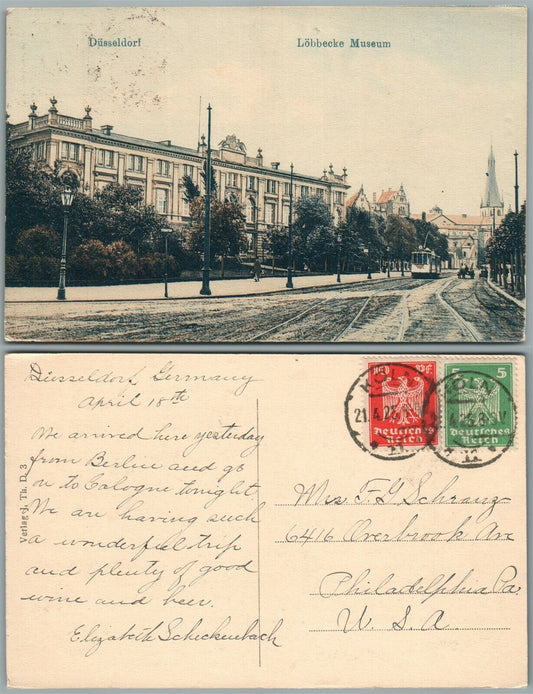 Düsseldorf
Löbbecke Museum
Düsseldorf, Germany
April 18th
We arrived here yesterday
from Berlin and go
on to Cologne tonight.
We are having such
a wonderful trip
and plenty of good
wine and beer.
Elizabeth Scheckenbach
Verlag J. Th. D. 3
KÖLN
21.4.2
10 PF.
Deutsches
Reich
KÖLN
5 5
Deutsches
Reich
Mrs. F. G Schranz
6416 Overbrook Ave
Philadelphia Pa.
U. S. A